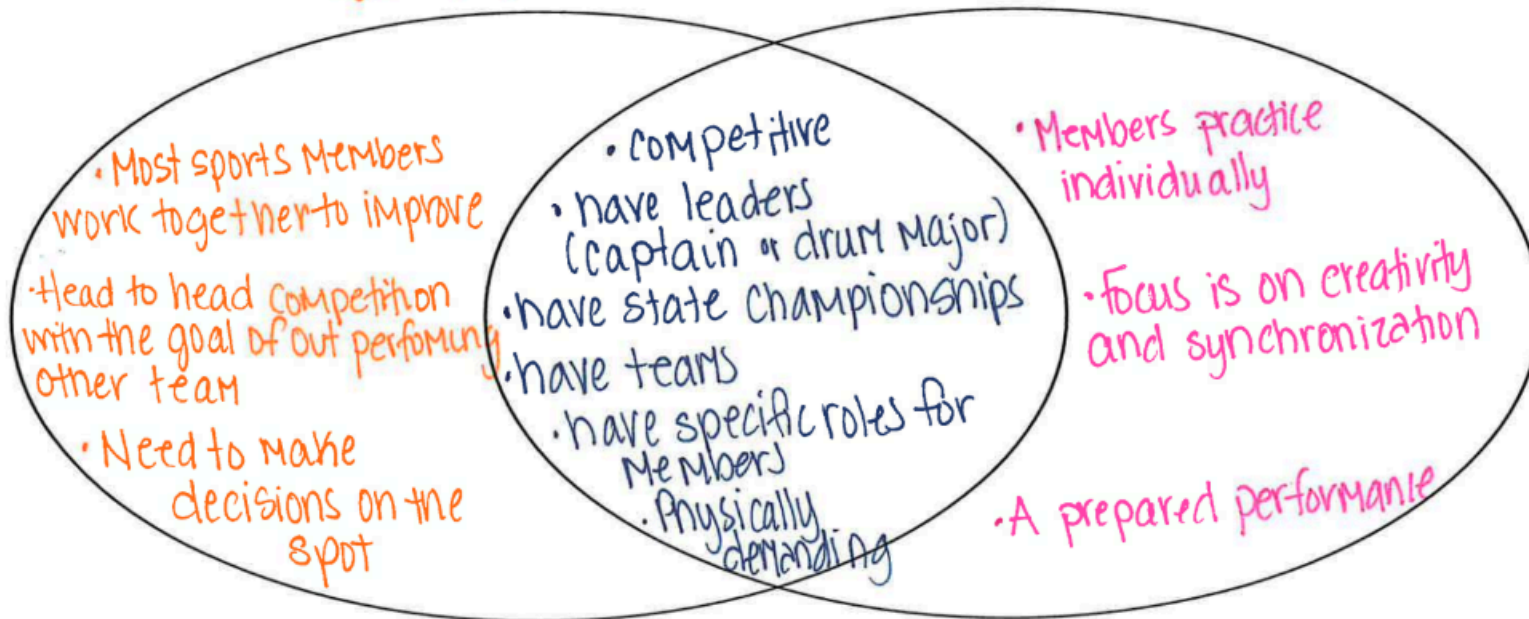 · Most sports Members
work together to improve
· Head to head competition
with the goal of out perfoming
other team
· Need to make
decisions on the
spot
· competitive
· have leaders
(captain or drum Major)
· have state championships
· have teams
· have specific roles for
Members
· Physically
demanding
· Members practice
individually
· Focus is on creativity
and synchronization
· A prepared performance